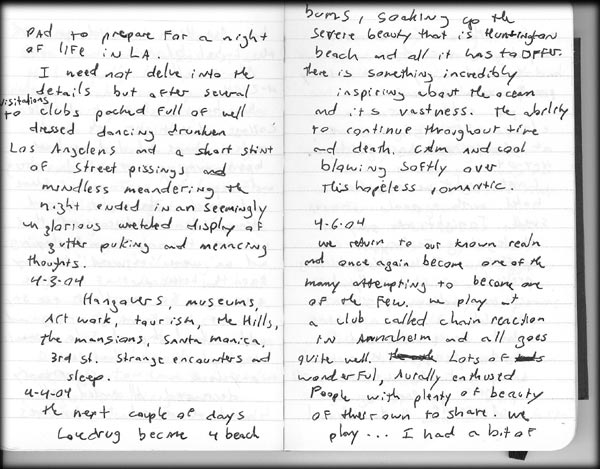 pad to prepare for a night
of life in LA.
I need not delve into the
details but after several
visitations
to clubs packed full of well
dressed dancing drunken
Los Angelens and a short stint
of street pissings and
mindless meandering the
night ended in an seemingly
unglorious wretched display of
gutter puking and menacing
thoughts.
4-3-04
Hangovers, museums,
Art work, tourism, the Hills,
the mansions, Santa monica,
3rd st. strange encounters and
sleep.
4-4-04
the next couple of days
Lovedrug become 4 beach
bums, soaking up the
severe beauty that is Huntington
beach and all it has to offer.
there is something incredibly
inspiring about the ocean
and it's vastness. The ability
to continue throughout time
and death. calm and cool
blowing softly over
this hopeless romantic.
4-6-04
we return to our known realm
and once again become one of the
many attempting to become one
of the few. we play at
a club called chain reaction
in Annaheim and all goes
quite well. Lots of
wonderful, Aurally enthused
People with plenty of beauty
of their own to share. we
play... I had a bit of